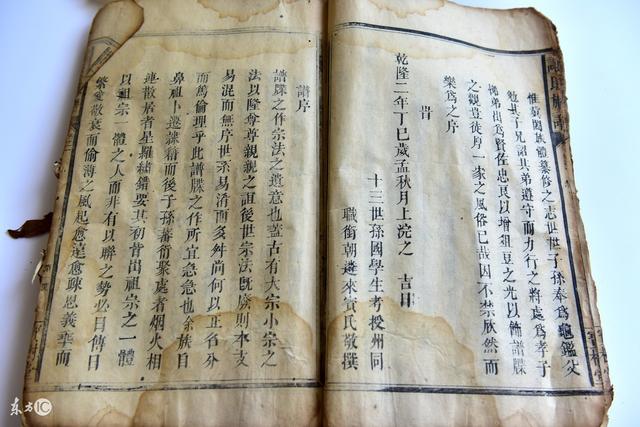 惟藉闔族體纂修之志世世子孫奉爲龜鑑父
勉其子兄詔其弟遵守而力行之將處爲孝子
悌弟出爲賢佐忠良以增俎豆之光以飾譜牒
之觀豈徒序一家之風俗已哉因不禁欣然而
樂爲之序
旹
乾隆二年丁巳歲孟秋月上浣之 吉日
十三世孫國學生考授州同
職銜朝遴來賓氏敬撰
譜序
譜牒之作宗法之遺意也蓋古有大宗小宗之
法以隆尊尊親親之誼後世宗法旣廢則本支
易混而無序世系易淆而多舛尚何以正名分
而篤倫理乎此譜牒之作所宜急急也余族自
鼻祖卜遷 籍而後子孫蕃衍聚處者烟火相
連散居者星羅繡錯要其初皆出祖宗之一體
以祖宗一體之人而非有以聯之勢必日傳日
繁愛敬衰而偷薄之風起愈遠愈疎恩義乖而
东方IC